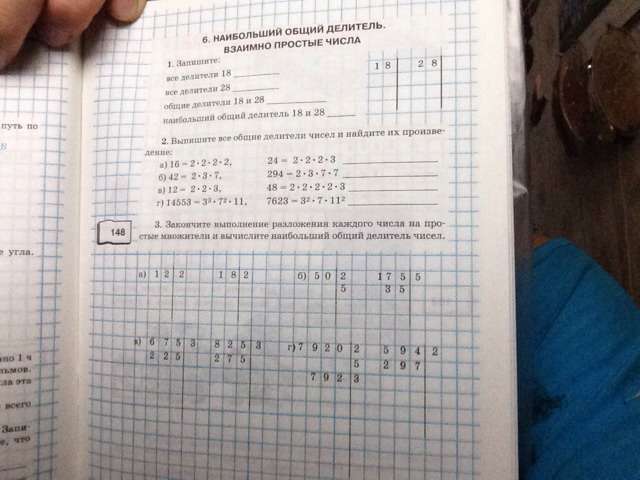 6. НАИБОЛЬШИЙ ОБЩИЙ ДЕЛИТЕЛЬ.
ВЗАИМНО ПРОСТЫЕ ЧИСЛА
1. Запишите:
все делители 18
все делители 28
общие делители 18 и 28
наибольший общий делитель 18 и 28
18 28
2. Выпишите все общие делители чисел и найдите их произве-
дение:
а) 16 = 2·2·2·2, 24 = 2·2·2·3
б) 42 = 2·3·7, 294 = 2·3·7·7
в) 12 = 2·2·3, 48 = 2·2·2·2·3
г) 14553 = 3³·7²·11, 7623 = 3²·7·11²
148
3. Закончите выполнение разложения каждого числа на про-
стые множители и вычислите наибольший общий делитель чисел.
а) 12 2 18 2 б) 50 2 175 5
5 35
в) 675 3 825 3 г) 7920 2 594 2
225 275 5 297
792 3
путь по
е угла.
но 1 ч
ьмов.
ла эта
всего
Запи-
е, что